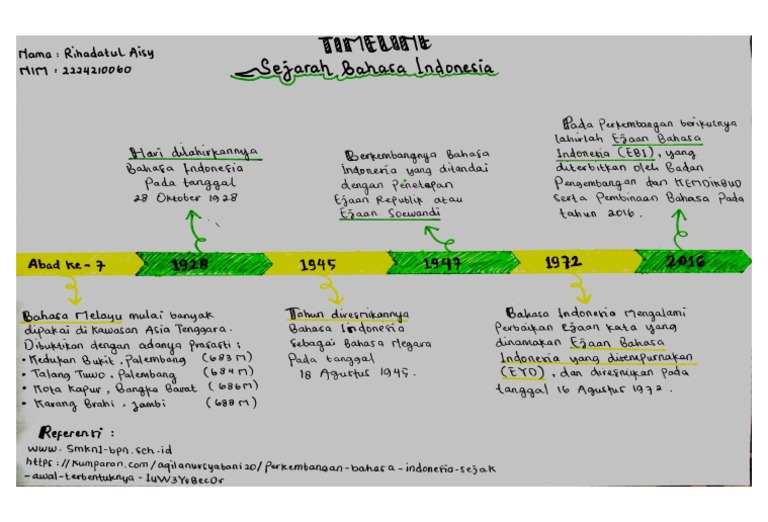 Nama : Rihadatul Aisy
NIM : 2224210060
TIMELINE
Sejarah Bahasa Indonesia
Hari dilahirkannya
Bahasa Indonesia
Pada tanggal
28 Oktober 1928
Berkembangnya Bahasa
Indonesia yang ditandai
dengan Penetapan
Ejaan Republik atau
Ejaan Soewandi
Pada Perkembangan berikutnya
lahirlah Ejaan Bahasa
Indonesia (EBI), yang
diterbitkan oleh Badan
Pengembangan dan KEMDIKBUD
serta Pembinaan Bahasa Pada
tahun 2016.
Abad ke-7
1928
1945
1947
1972
2016
Bahasa Melayu mulai banyak
dipakai di kawasan Asia Tenggara.
Dibuktikan dengan adanya Prasasti :
• Kedukan Bukit, Palembang (683M)
• Talang Tuwo, Palembang (684M)
• Kota Kapur, Bangka Barat (686M)
• Karang Brahi, Jambi (688M)
Tahun diresmikannya
Bahasa Indonesia
sebagai Bahasa Negara
Pada tanggal
18 Agustus 1945.
Bahasa Indonesia Mengalami
Perbaikan Ejaan kata yang
dinamakan Ejaan Bahasa
Indonesia yang disempurnakan
(EYD), dan diresmikan pada
tanggal 16 Agustus 1972.
Referensi :
www.smkn1-bpn.sch.id
https://kumparan.com/aqilanursyabani20/perkembangan-bahasa-indonesia-sejak
-awal-terbentuknya-1uW3YvBecOr